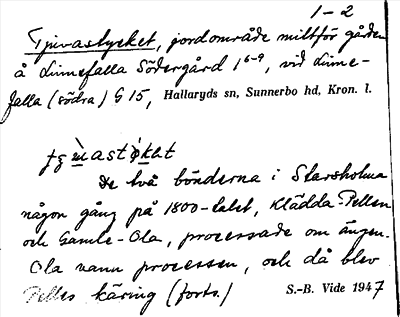 1-2
Tjuvastycket, jordområde mittför gården
å Linnefalla Södergård 1⁶⁻⁹, vid Linne-
falla (södra) G 15, Hallaryds sn, Sunnerbo hd, Kron. l.
De två bönderna i Starsholma
någon gång på 1800-talet, Klädda-Pellen
och Gamle-Ola, processade om ängen.
Ola vann processen, och då blev
Pelles käring (forts.)
S.-B. Vide 1947